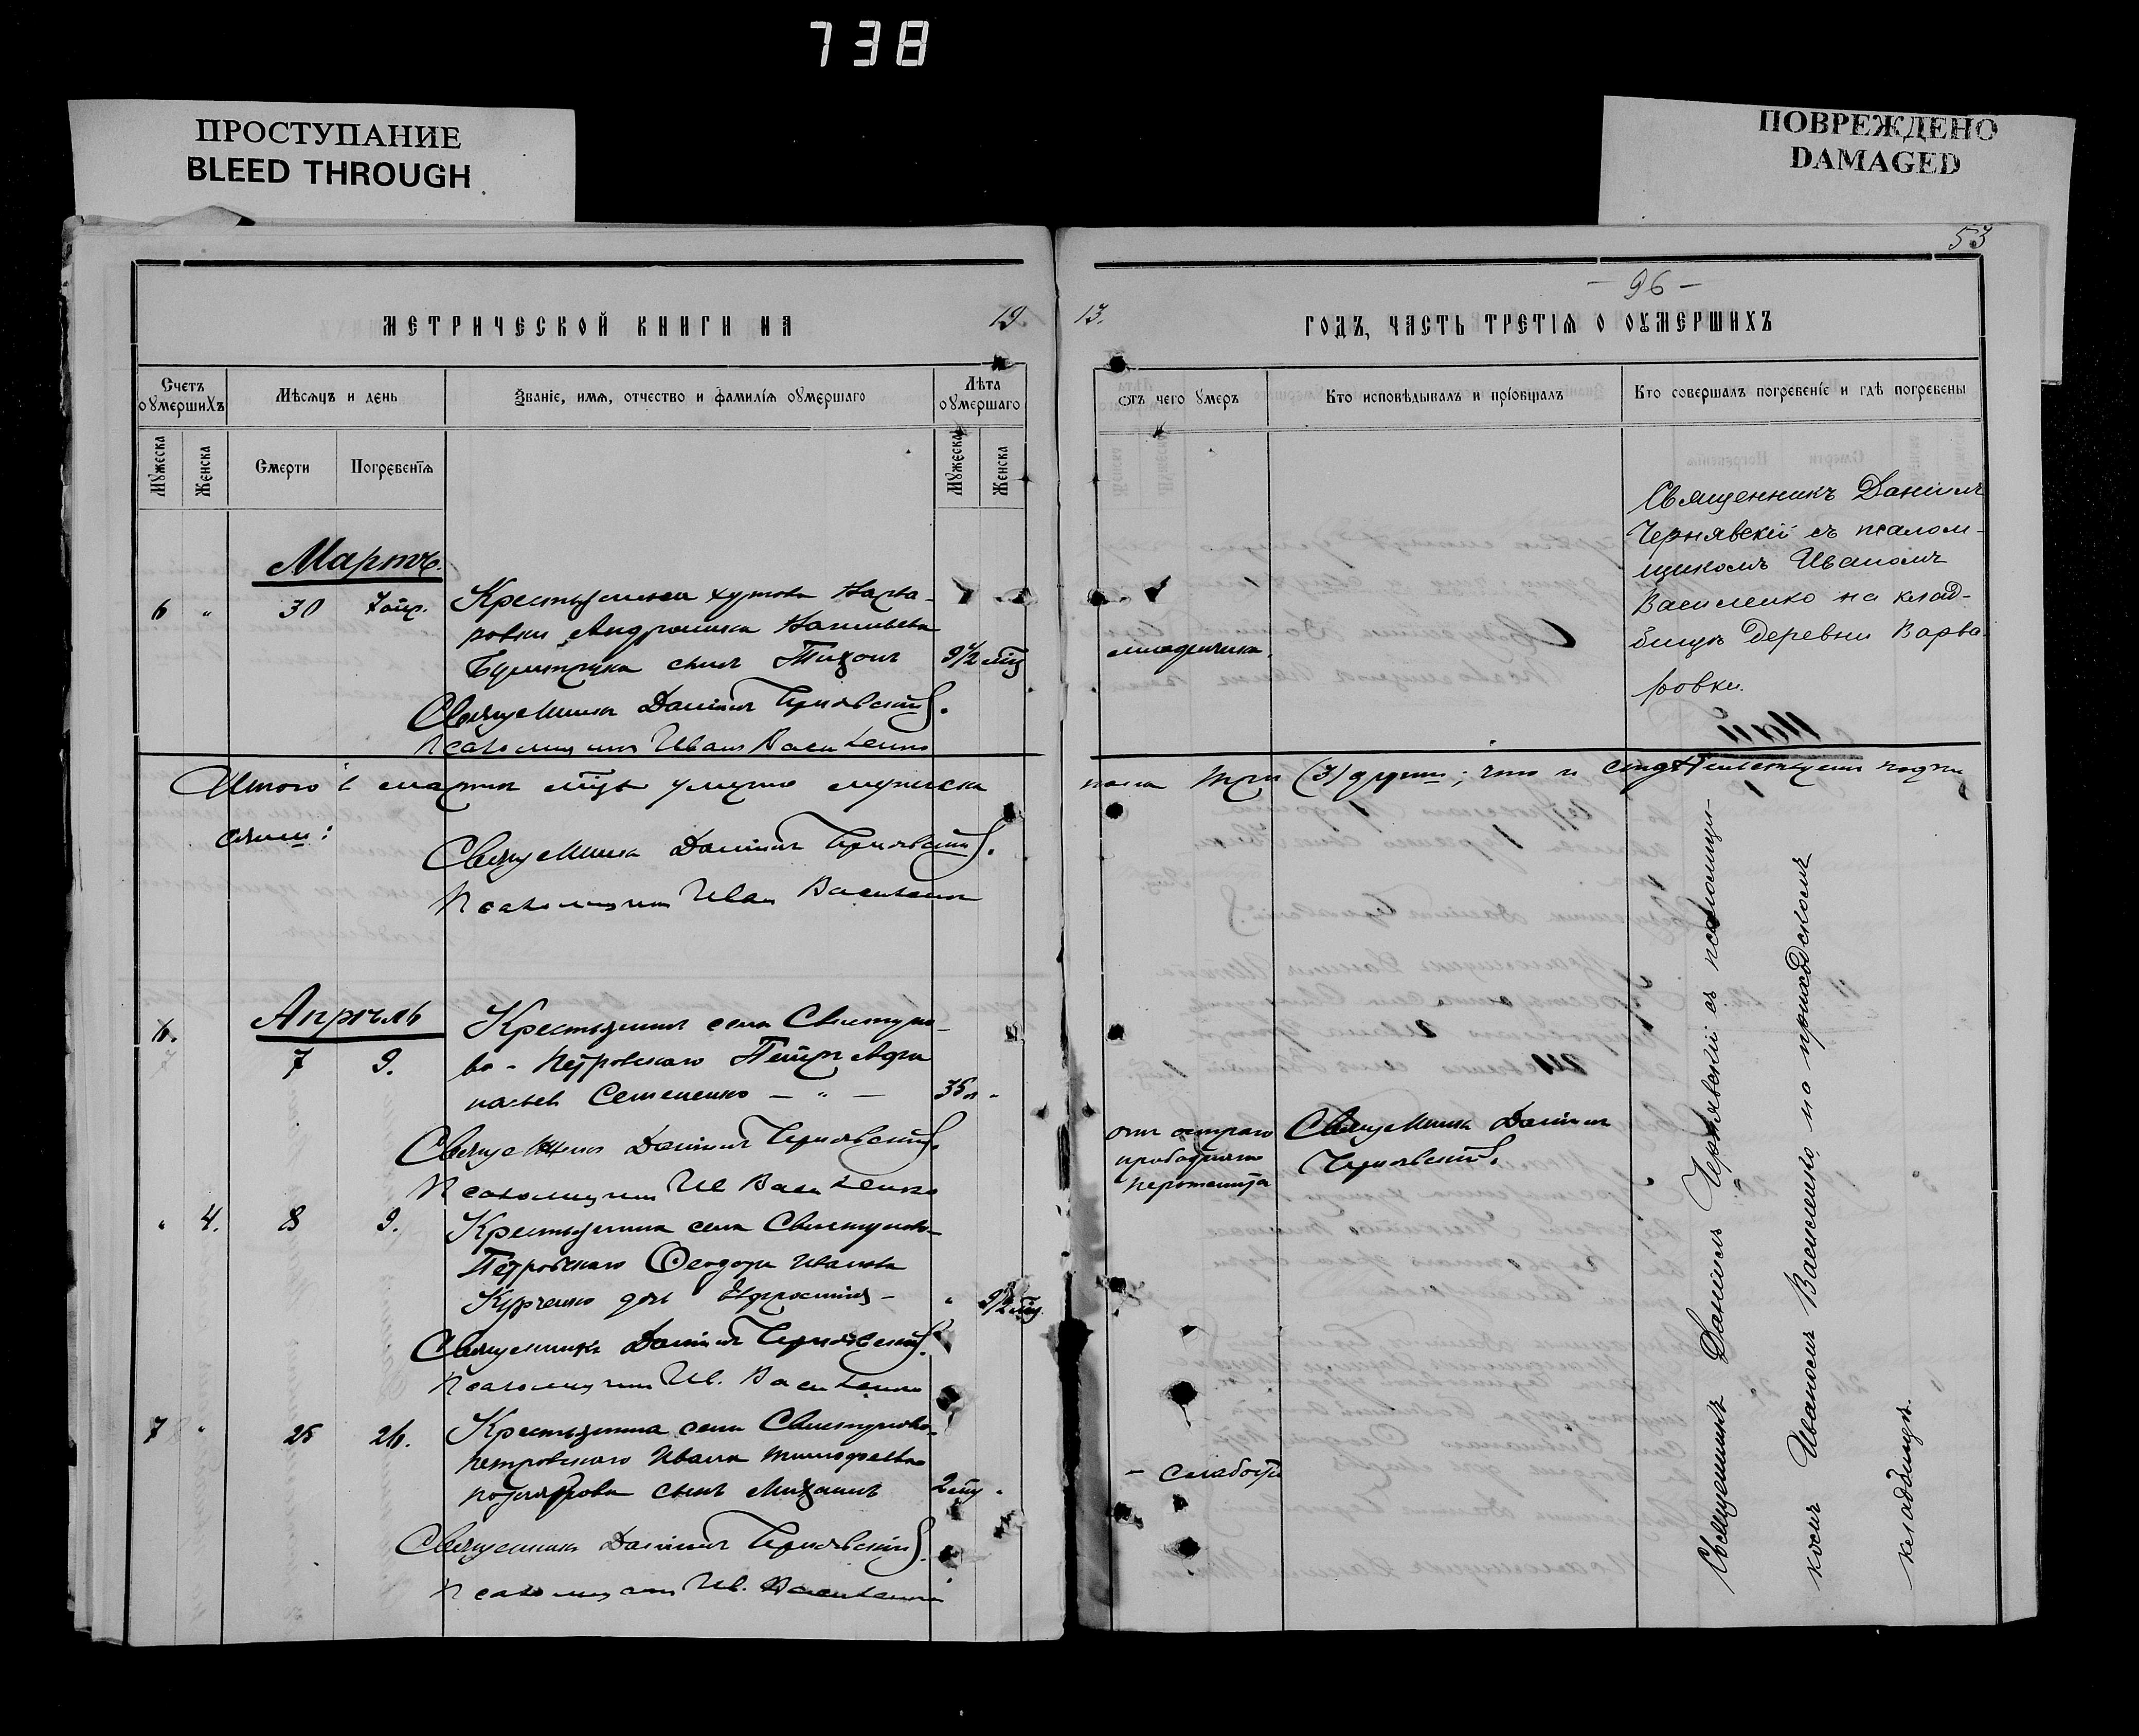 738
ПРОСТУПАНИЕ
BLEED THROUGH
ПОВРЕЖДЕНО
DAMAGED
53
- 96 -
МЕТРИЧЕСКОЙ КНИГИ НА 19
13. ГОДЪ, ЧАСТЬ ТРЕТІЯ О ОУМЕРШИХЪ
Счетъ оумершихъ
Мѣсяцъ и день
Званіе, имя, отчество и фамилія оумершаго
Лѣта оумершаго
Мужеска
Женска
Смерти
Погребенія
Мужеска
Женска
отъ чего умеръ
Кто исповѣдывалъ и пріобщалъ
Кто совершалъ погребеніе и гдѣ погребены
Мартъ.
6 " 30
Крестьянина хутора Варва-
ровки
сынъ Тихонъ 9 1/2 мѣс
Священникъ Даніилъ Чернявскій.
Псаломщикъ Иванъ Василенко
Священникъ Даніилъ
Чернявскій съ псалом-
щикомъ Иваномъ
Василенко на клад-
бищѣ деревни Варва-
ровки.
Итого въ мартѣ мѣсяцѣ умерло мужеска
пола три (3) души; что и свидѣтельствуемъ подпи
сями:
Священникъ Даніилъ Чернявскій.
Псаломщикъ Иванъ Василенко
Апрѣль
6.
7 9.
Крестьянинъ села Свистуно-
во-Петровскаго Петръ
Семененко — " — 35 л "
Священникъ Даніилъ Чернявскій.
Псаломщикъ Ив Василенко
отъ остраго
перитонита
Священникъ Даніилъ
Чернявскій.
" 4. 8 9.
Крестьянина села Свистуново-
Петровскаго Феодора Иванова
Курченко дочь - " 9 1/2 мѣс.
Священникъ Даніилъ Чернявскій.
Псаломщикъ Ив. Василенко
7 " 25 26.
Крестьянина села Свистуново-
Петровскаго Ивана Тимофеева
сынъ Михаилъ 2 мѣс "
- слабости
Священникъ Даніилъ Чернявскій.
Псаломщикъ Ив. Василенко
Священникъ Даніилъ Чернявскій съ псаломщи-
комъ Иваномъ Василенко на приходскомъ
кладбищѣ.